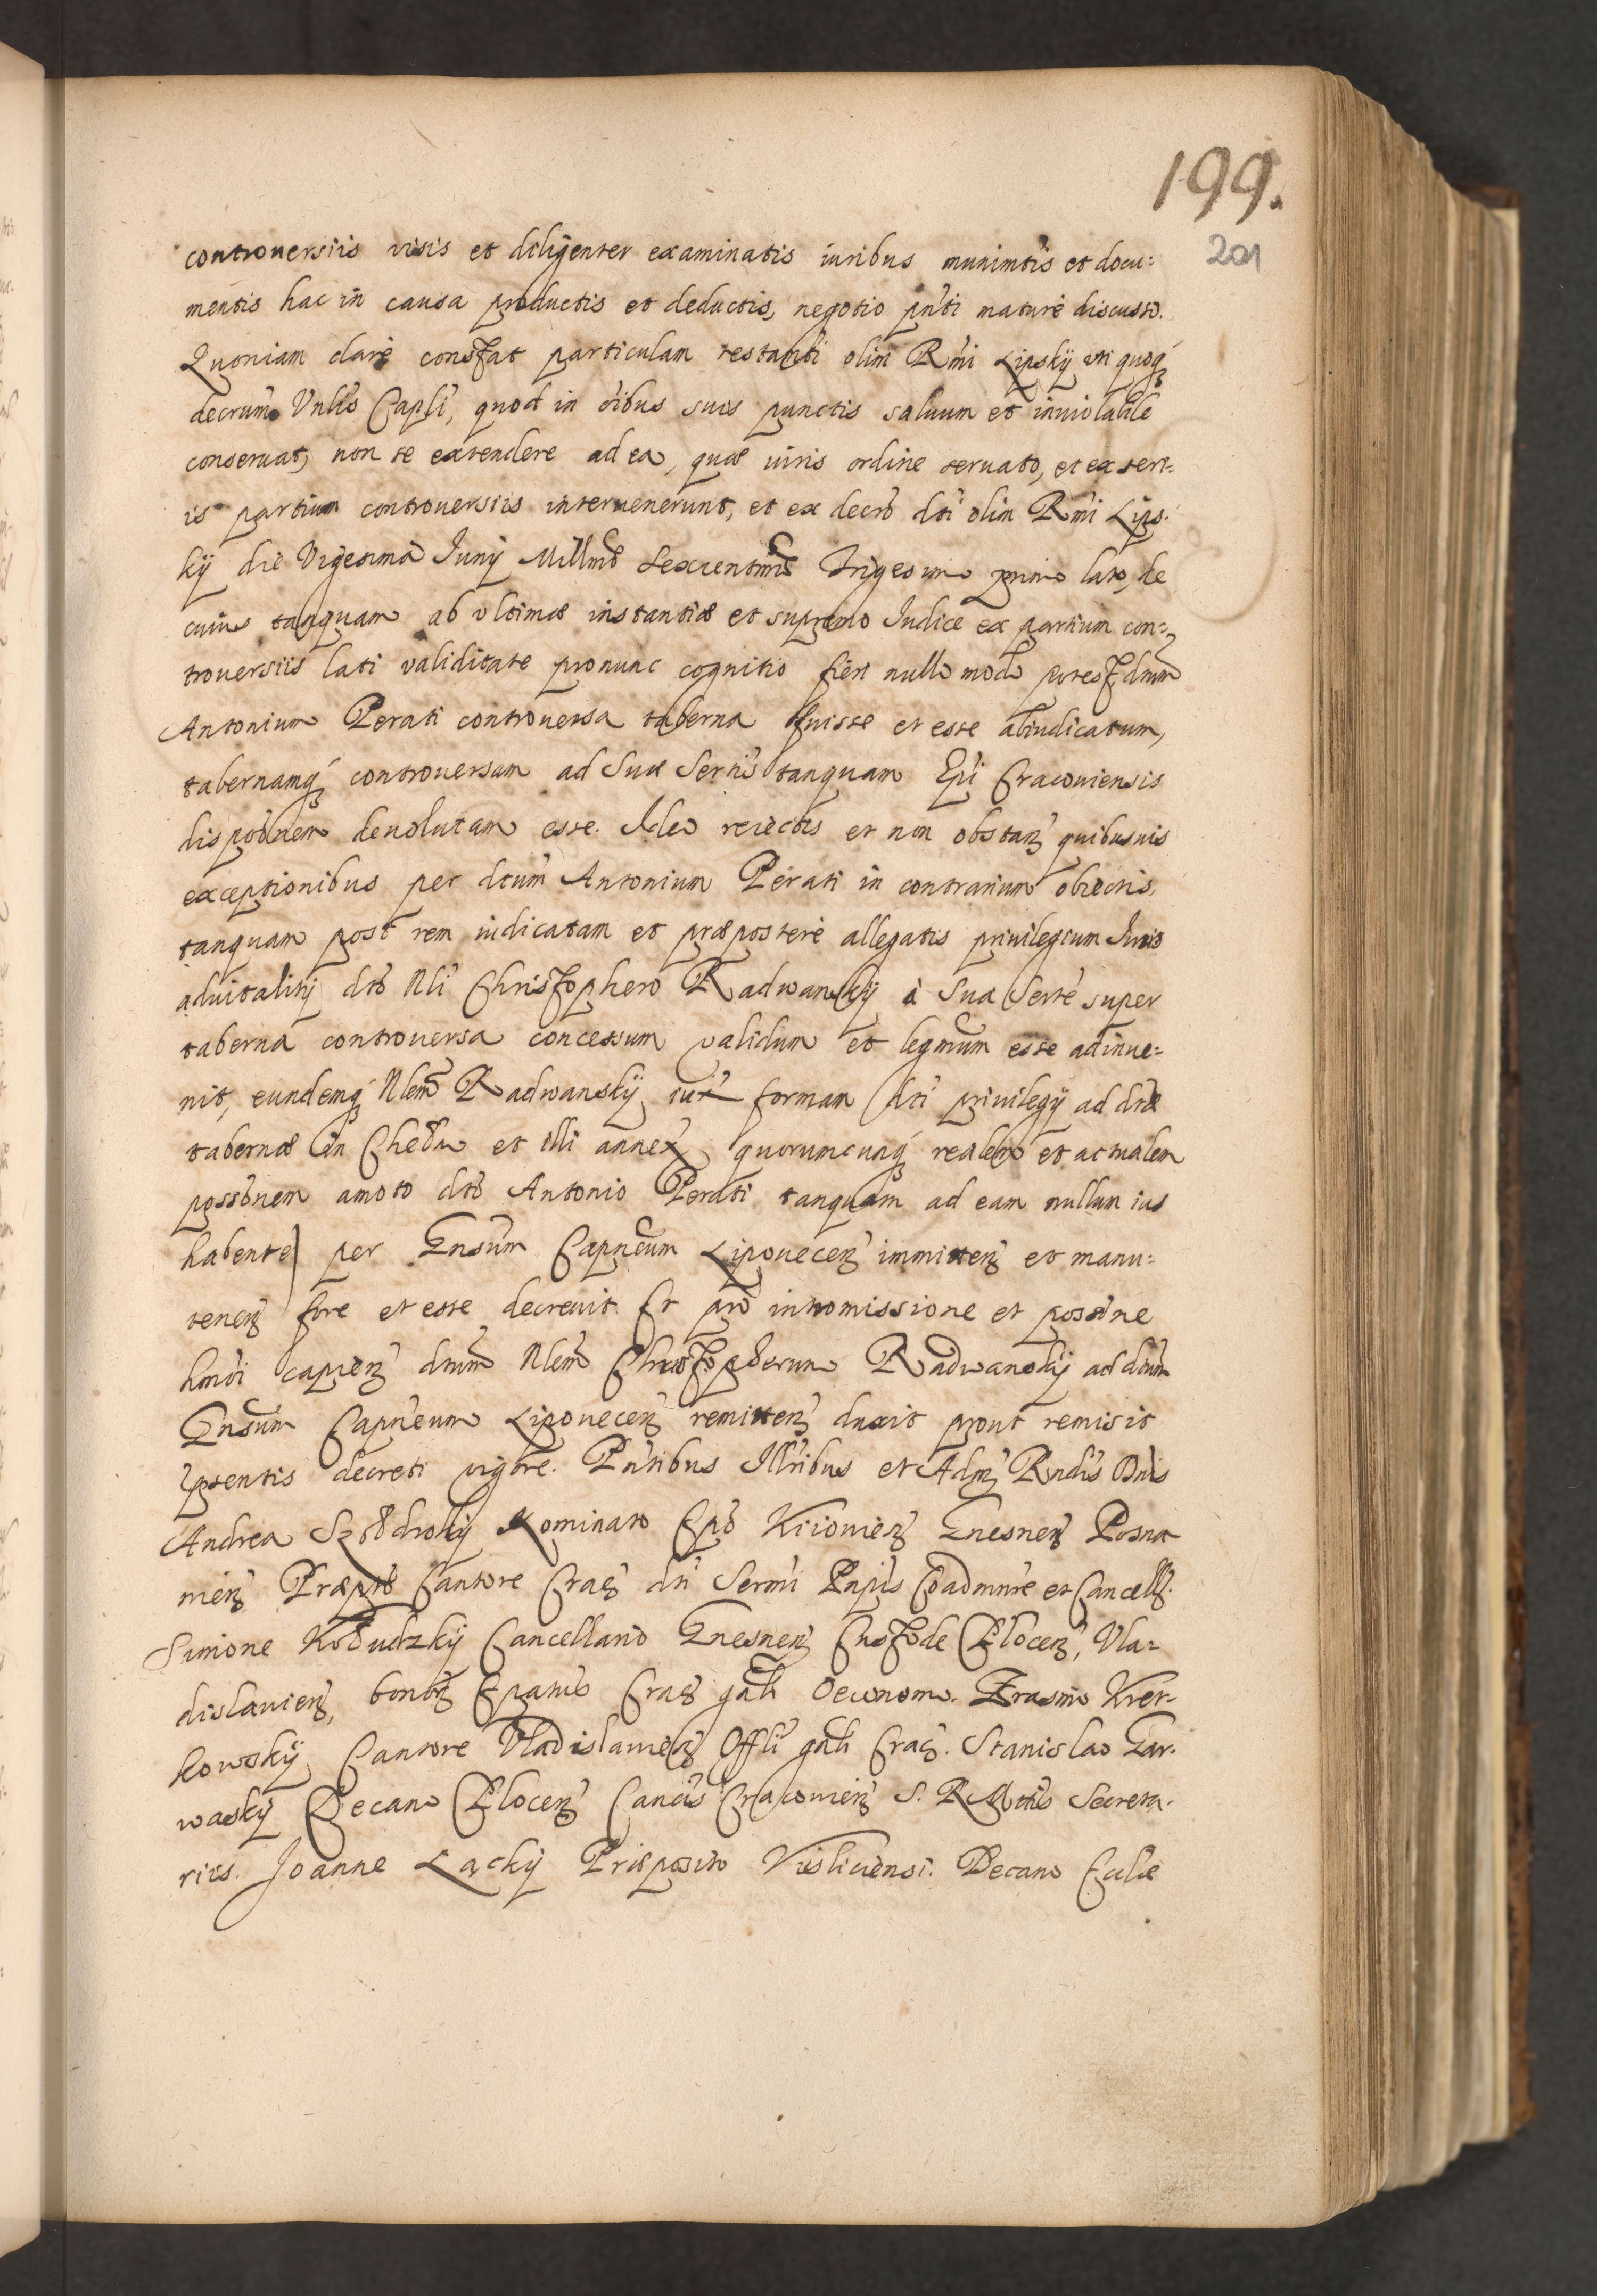 199.
201
controuersiis visis et diligenter examinatis iuribus munimtis et docu:
mentis hac in causa productis et deductis, negotio pnti maturè discusso.
Quoniam clarè constat particulam testamti olim Rmi Lipskÿ uti quoq
decrum Vnlis Capli, quod in oibus suis punctis saluum et inuiolabile
conseruat, non se extendere ad ea, quæ iuris ordine seruato, et ex seri=
is partium controuersiis interuenerunt, et ex decro dti olim Rmi Lips.
kÿ die Vigesima Junÿ Millmo Sexcentmo Trigesimo primo lato, de
cuius tanquam ab vltimæ instantiæ et supremo Judice ex partium con=
trouersiis lati validitate pronunc cognitio fieri nullo modo potest dnum
Antonium Perati controuersa taberna fuisse et esse abiudicatum,
tabernamq controuersam ad Suæ Sertis tanquam Epi Cracouiensis
disponem deuolutam esse. Ideo reiectis et non obstan quibusuis
exceptionibus per dtum Antonium Perati in contrarium obiectis,
tanquam post rem iudicatam et præposterè allegatis priuilegium Juris
aduitalitÿ dto Nli Christophero Radwanskÿ à Sua Serte super
taberna controuersa concessum validum et legmum esse adinue=
nit, eundemq Nlem Radwanskÿ iux formam dti priuilegÿ ad dtæ
tabernæ in et illi annex quorumcunq realem et actualem
possonem amoto dto Antonio Perati tanquam ad eam nullum ius
habente) per Gnsum Capneum Lipouecen immitten et manu=
tenen fore et esse decreuit. Et pro intromissione et possone
hmoi capien dnum Nlem Christopherum Radwanskÿ ad dtum
Gnsum Capneum Lipouecen remitten duxit prout remisit
psentis decreti vigore. Pntibus Illribus et Adm Rndis Dnis
Andrea Szołdrskÿ Nominato Epo Kiiouien Gnesnen Posna
nien Præpto Cantore Crac dti Sermi Epis Coadmnre et Cancell.
Simone Kołudzkÿ Cancellario Gnesnen Custode Plocen, Vla=
dislauien, bonor Epatus Crac gnli Oeconomo. Erasmo Kret=
kowskÿ Cantore Vladislauien Offli gnli Crac. Stanislao Gar.
waskÿ Decano Plocen Cancis Cracouien S. R Mttis Secreta.
riis. Joanne Lackÿ Præposito Visliciensi. Decano Eccliæ